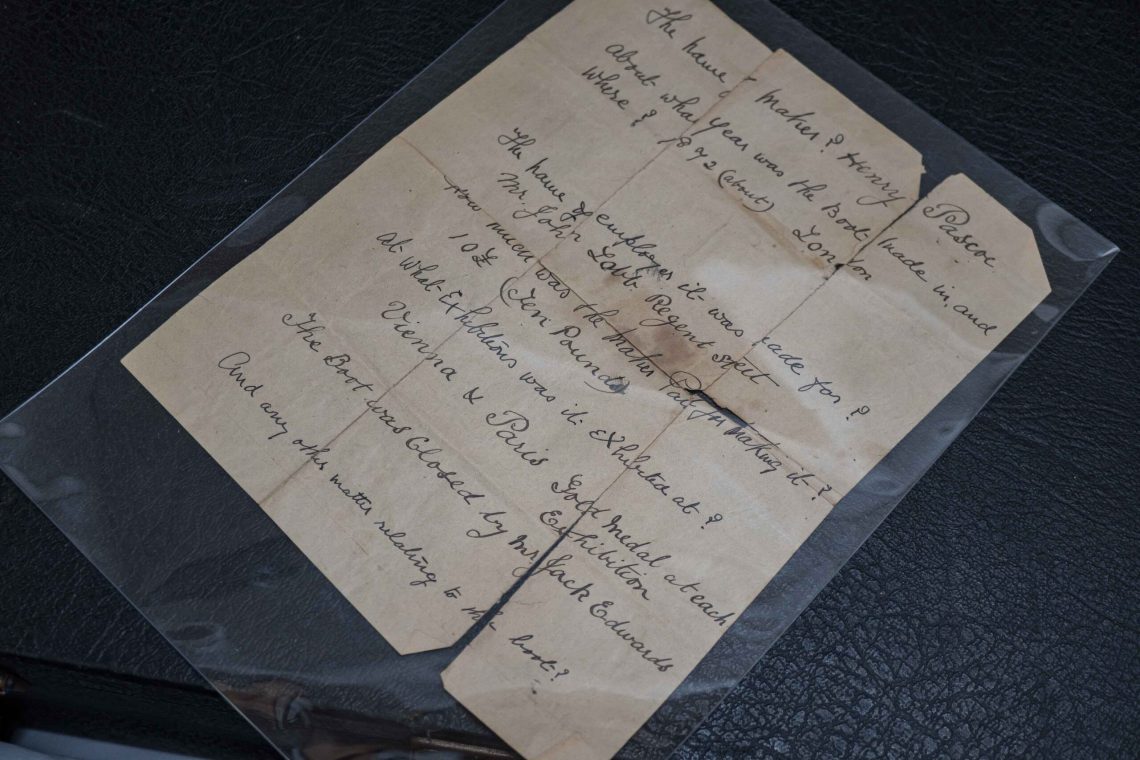 The name maker? Henry Pascoe
about what year was the Boot made in, and
where? 1872 (about) London
The name of employer it was made for?
Mr. John Lobb Regent Street
How much was the maker Paid for making it?
10£ (Ten Pounds)
at what Exhibitions was it Exhibited at?
Vienna & Paris Gold Medal at each
Exhibition
The Boot was Closed by Mr Jack Edwards
And any other matter relating to the boot?